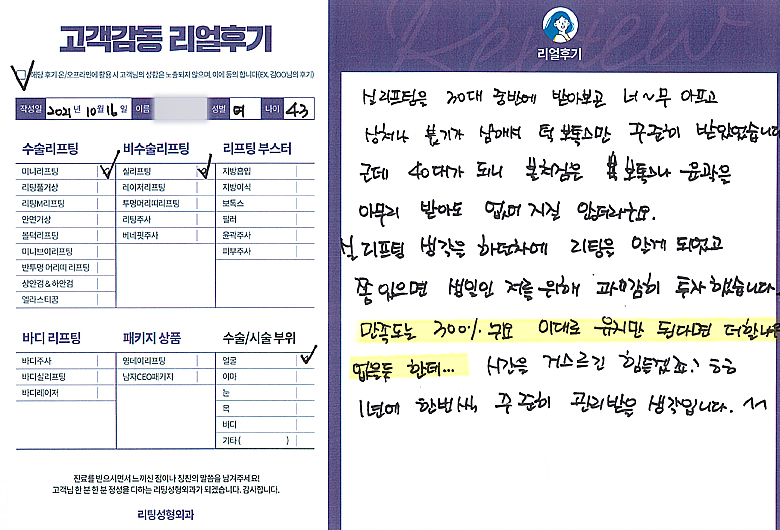 고객감동 리얼후기
해당 후기 온/오프라인에 활용 시 고객님의 성함은 노출되지 않으며, 이에 동의 합니다(EX. 김OO님의 후기)
작성일 2021년 10월 16일 이름 성별 여 나이 43
수술리프팅
미니리프팅
리팅풀거상
리팅M리프팅
안면거상
볼턱리프팅
미니브이리프팅
반투명 머리띠 리프팅
상안검 & 하안검
엘라스티꿈
비수술리프팅
실리프팅
레이저리프팅
투명머리띠리프팅
리팅주사
베네핏주사
리프팅 부스터
지방흡입
지방이식
보톡스
필러
윤곽주사
피부주사
바디 리프팅
바디주사
바디실리프팅
바디레이저
패키지 상품
원데이리프팅
남자CEO패키지
수술/시술 부위
얼굴
이마
눈
목
바디
기타 ( )
진료를 받으시면서 느끼신 점이나 칭찬의 말씀을 남겨주세요!
고객님 한 분 한 분 정성을 다하는 리팅성형외과가 되겠습니다. 감사합니다.
리팅성형외과
Review
리얼후기
실리프팅은 30대 중반에 받아보고 너~무 아프고
상처나 붓기가 심해서 턱 보톡스만 꾸준히 받았었습니다
근데 40대가 되니 볼처짐은 보톡스나 윤곽은
아무리 받아도 없어지질 않더라구요.
실리프팅 생각을 하던차에 리팅을 알게 되었고
쫌 있으면 생일인 저를 위해 과감히 투자했습니다.
만족도는 300% 구요 이대로 유지만 된다면 더할나위
없을듯 한데... 시간을 거스르긴 힘들겠죠? ㅎㅎ
1년에 한번씩 꾸준히 관리받을 생각입니다. ^^